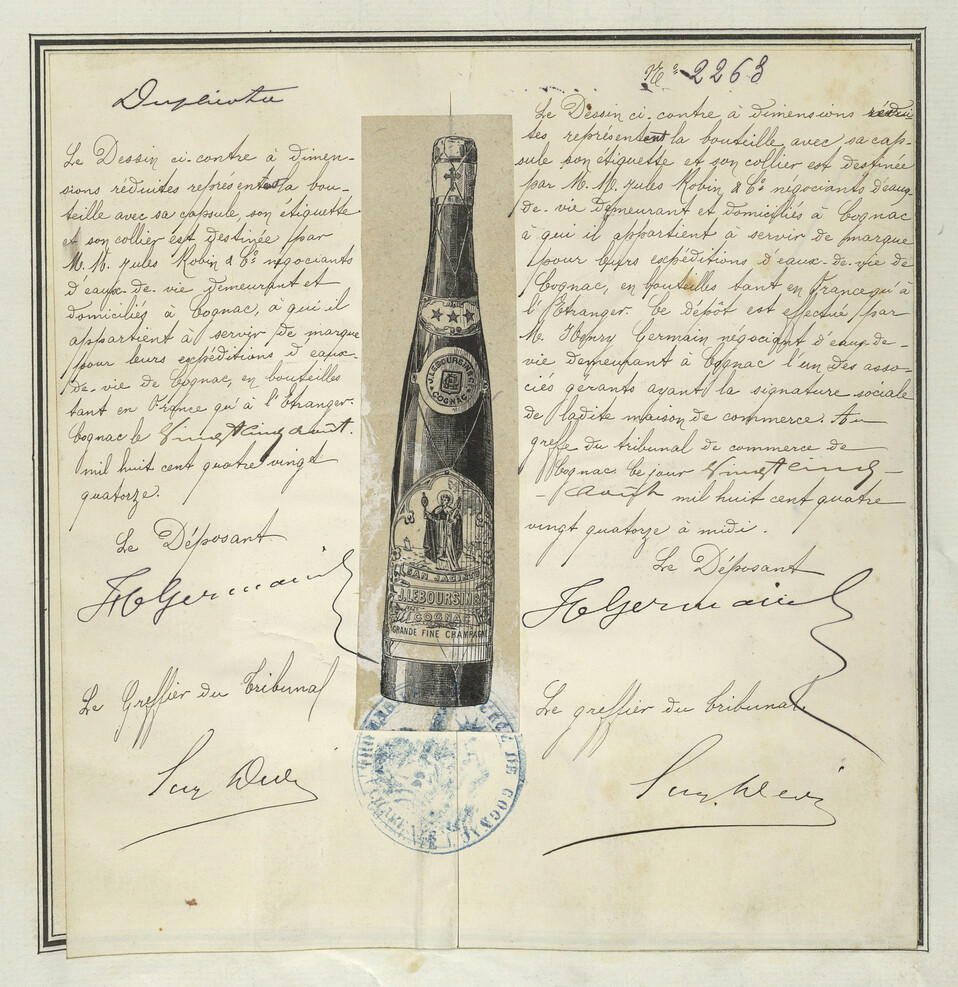 Duplicata
Le Dessin ci-contre à dimen-
sions réduites représentant la bou-
teille avec sa capsule, son étiquette
et son collier est destinée par
M.M. Jules Robin & Cº négociants
d'eaux-de-vie demeurant et
domiciliés à Cognac, à qui il
appartient à servir de marque
pour leurs expéditions d'eaux-
de-vie de Cognac, en bouteilles
tant en France qu'à l'Etranger.
Cognac le vingt cinq août.
mil huit cent quatre vingt
quatorze.
Le Déposant
H Germain
Le Greffier du Tribunal
★★★
J. LEBOURSIN & Cº
COGNAC
SAN JACINTO
J. LEBOURSIN & Cº
COGNAC
GRANDE FINE CHAMPAGNE
TRIBUNAL DE COGNAC
CHARENTE
Nº 2263
Le Dessin ci-contre à dimensions rédui
tes représentant la bouteille avec sa cap-
sule son étiquette et son collier est destinée
par M.M. Jules Robin & Cº négociants d'eaux-
de-vie demeurant et domiciliés à Cognac
à qui il appartient à servir de marque
pour leurs expéditions d'eaux-de-vie de
Cognac, en bouteilles tant en France qu'à
l'Etranger. Ce dépôt est effectué par
M. Henry Germain négociant d'eaux-de-
vie demeurant à Cognac l'un des asso-
ciés gérants ayant la signature sociale
de ladite maison de commerce. Au
greffe du tribunal de commerce de
Cognac. Ce jour vingt cinq
août mil huit cent quatre
vingt quatorze à midi.
Le Déposant
H Germain
Le greffier du tribunal.